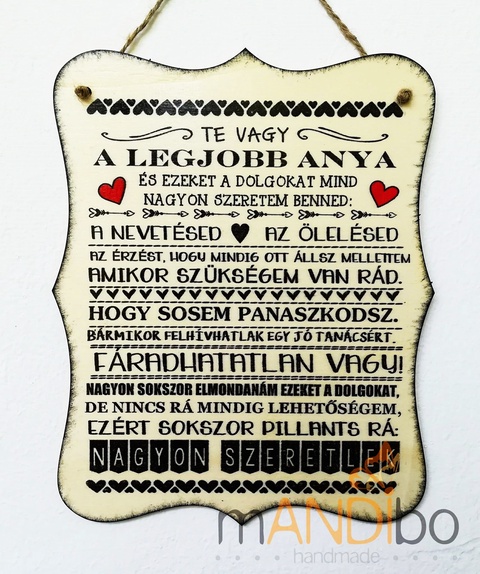 TE VAGY
A LEGJOBB ANYA
ÉS EZEKET A DOLGOKAT MIND
NAGYON SZERETEM BENNED:
A NEVETÉSED AZ ÖLELÉSED
AZ ÉRZÉST, HOGY MINDIG OTT ÁLLSZ MELLETTEM
AMIKOR SZÜKSÉGEM VAN RÁD.
HOGY SOSEM PANASZKODSZ.
BÁRMIKOR FELHÍVHATLAK EGY JÓ TANÁCSÉRT.
FÁRADHATATLAN VAGY!
NAGYON SOKSZOR ELMONDANÁM EZEKET A DOLGOKAT,
DE NINCS RÁ MINDIG LEHETŐSÉGEM,
EZÉRT SOKSZOR PILLANTS RÁ:
NAGYON SZERETLEK
mANDIbo
handmade